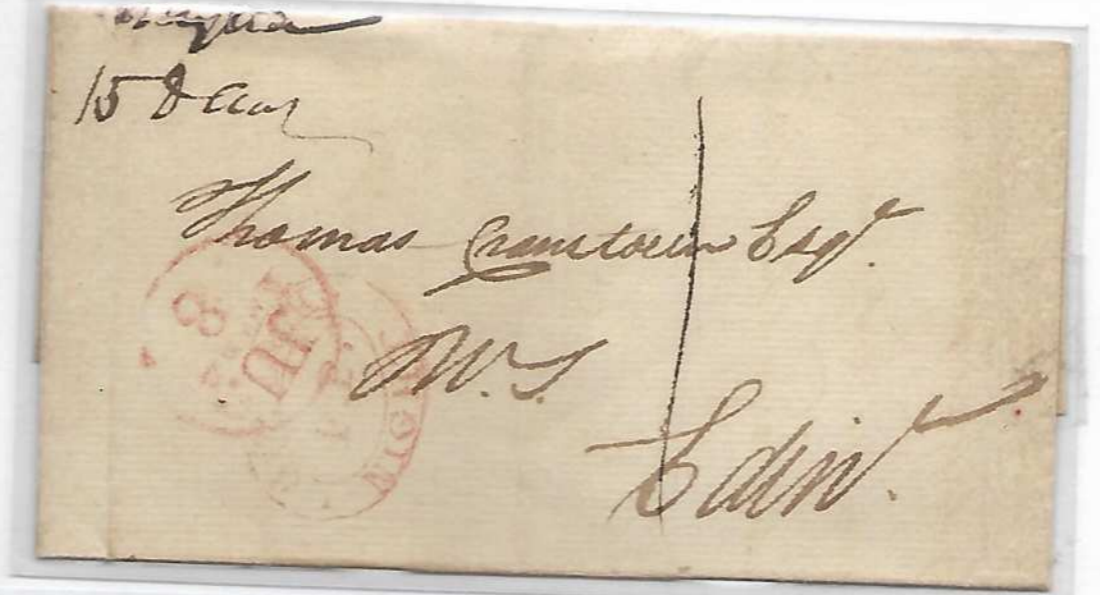 15 Decr
Thomas Cranstoun Esqr.
W. S.
Edinr.
8
NIGH